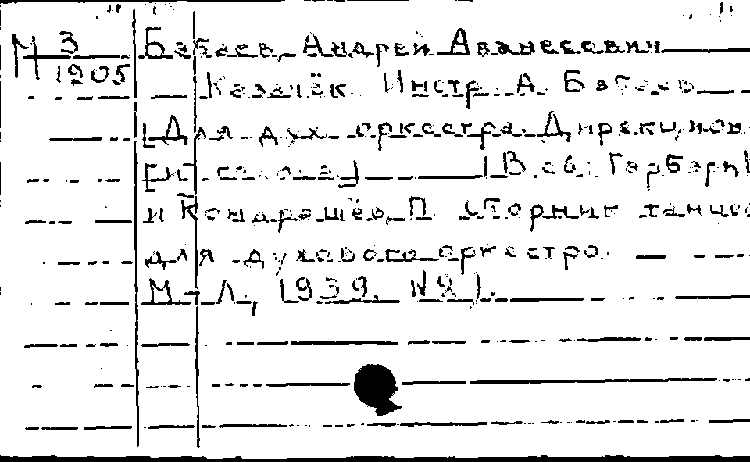 М 3 Бабаев, Андрей Аванесович
1905 Казачёк. Инстр. А. Бабаев
[Для дух. оркестра. Дирекцион
[и голоса] (В сб: Гарбарь
и Кондрашёв, П. Сборник танцев
для духового оркестра.
М-Л, 1939, №2).